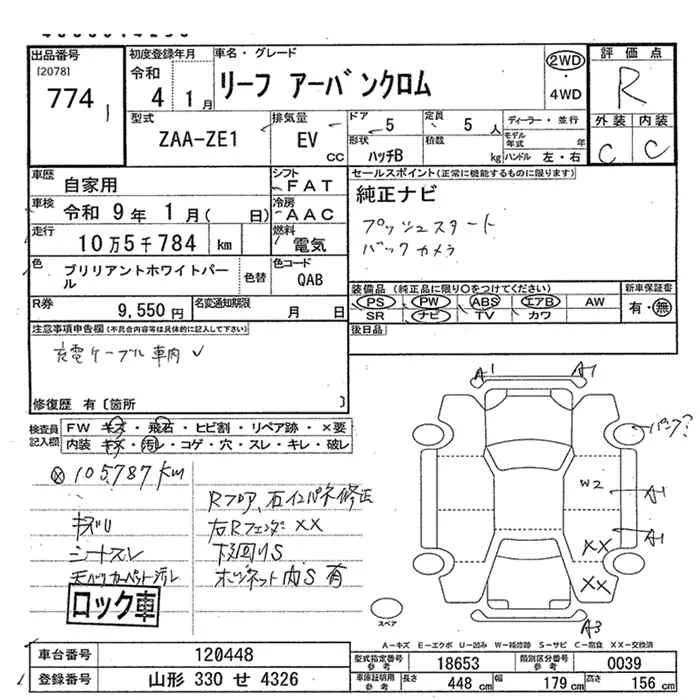 出品番号
[2078]
774
初度登録年月
令和
4 1月
車名・グレード
リーフ アーバンクロム
2WD
・
4WD
評価点
R
外装 内装
C C
型式
ZAA-ZE1
排気量
EV
CC
ドア
5
定員
5 人
形状
ハッチB
積数
kg
ディーラー・並行
モデル年式 年
ハンドル 左・右
車歴
自家用
シフト
FAT
車検
令和 9年 1月( 日)
冷房
AAC
走行
10万5千784 km
燃料
電気
色
ブリリアントホワイトパール
色替
色コード
QAB
R券
9,550円
名変通知期限
月 日
セールスポイント(正常に機能するものに限ります)
純正ナビ
プッシュスタート
バックカメラ
装備品 (純正品に限り○をつけてください)
新車保証書
PS PW ABS エアB AW
SR ナビ TV カワ
有・無
後日品
注意事項申告欄(不具合内容等は具体的に記入して下さい)
充電ケーブル車内
修復歴 有〔箇所 〕
検査員記入欄
FW キズ・飛石・ヒビ割・リペア跡・×要
内装 キズ・汚レ・コゲ・穴・スレ・キレ・破レ
105,787km
キズU
シートスレ
天ベリカーペット汚レ
ロック車
Rフロア、右インパネ修正
右Rフェンダ XX
下回りS
ボンネット内S 有
A1 A1
パンク?
W2 A1
A1
XX
XX
A3
スペア
A-キズ E-エクボ U-凹み W-補修跡 S-サビ C-腐食 XX-交換済
車台番号
120448
登録番号
山形 330 せ 4326
型式指定番号参考
18653
類別区分番号参考
0039
車庫証明用参考
長さ 448cm 幅 179cm 高さ 156cm